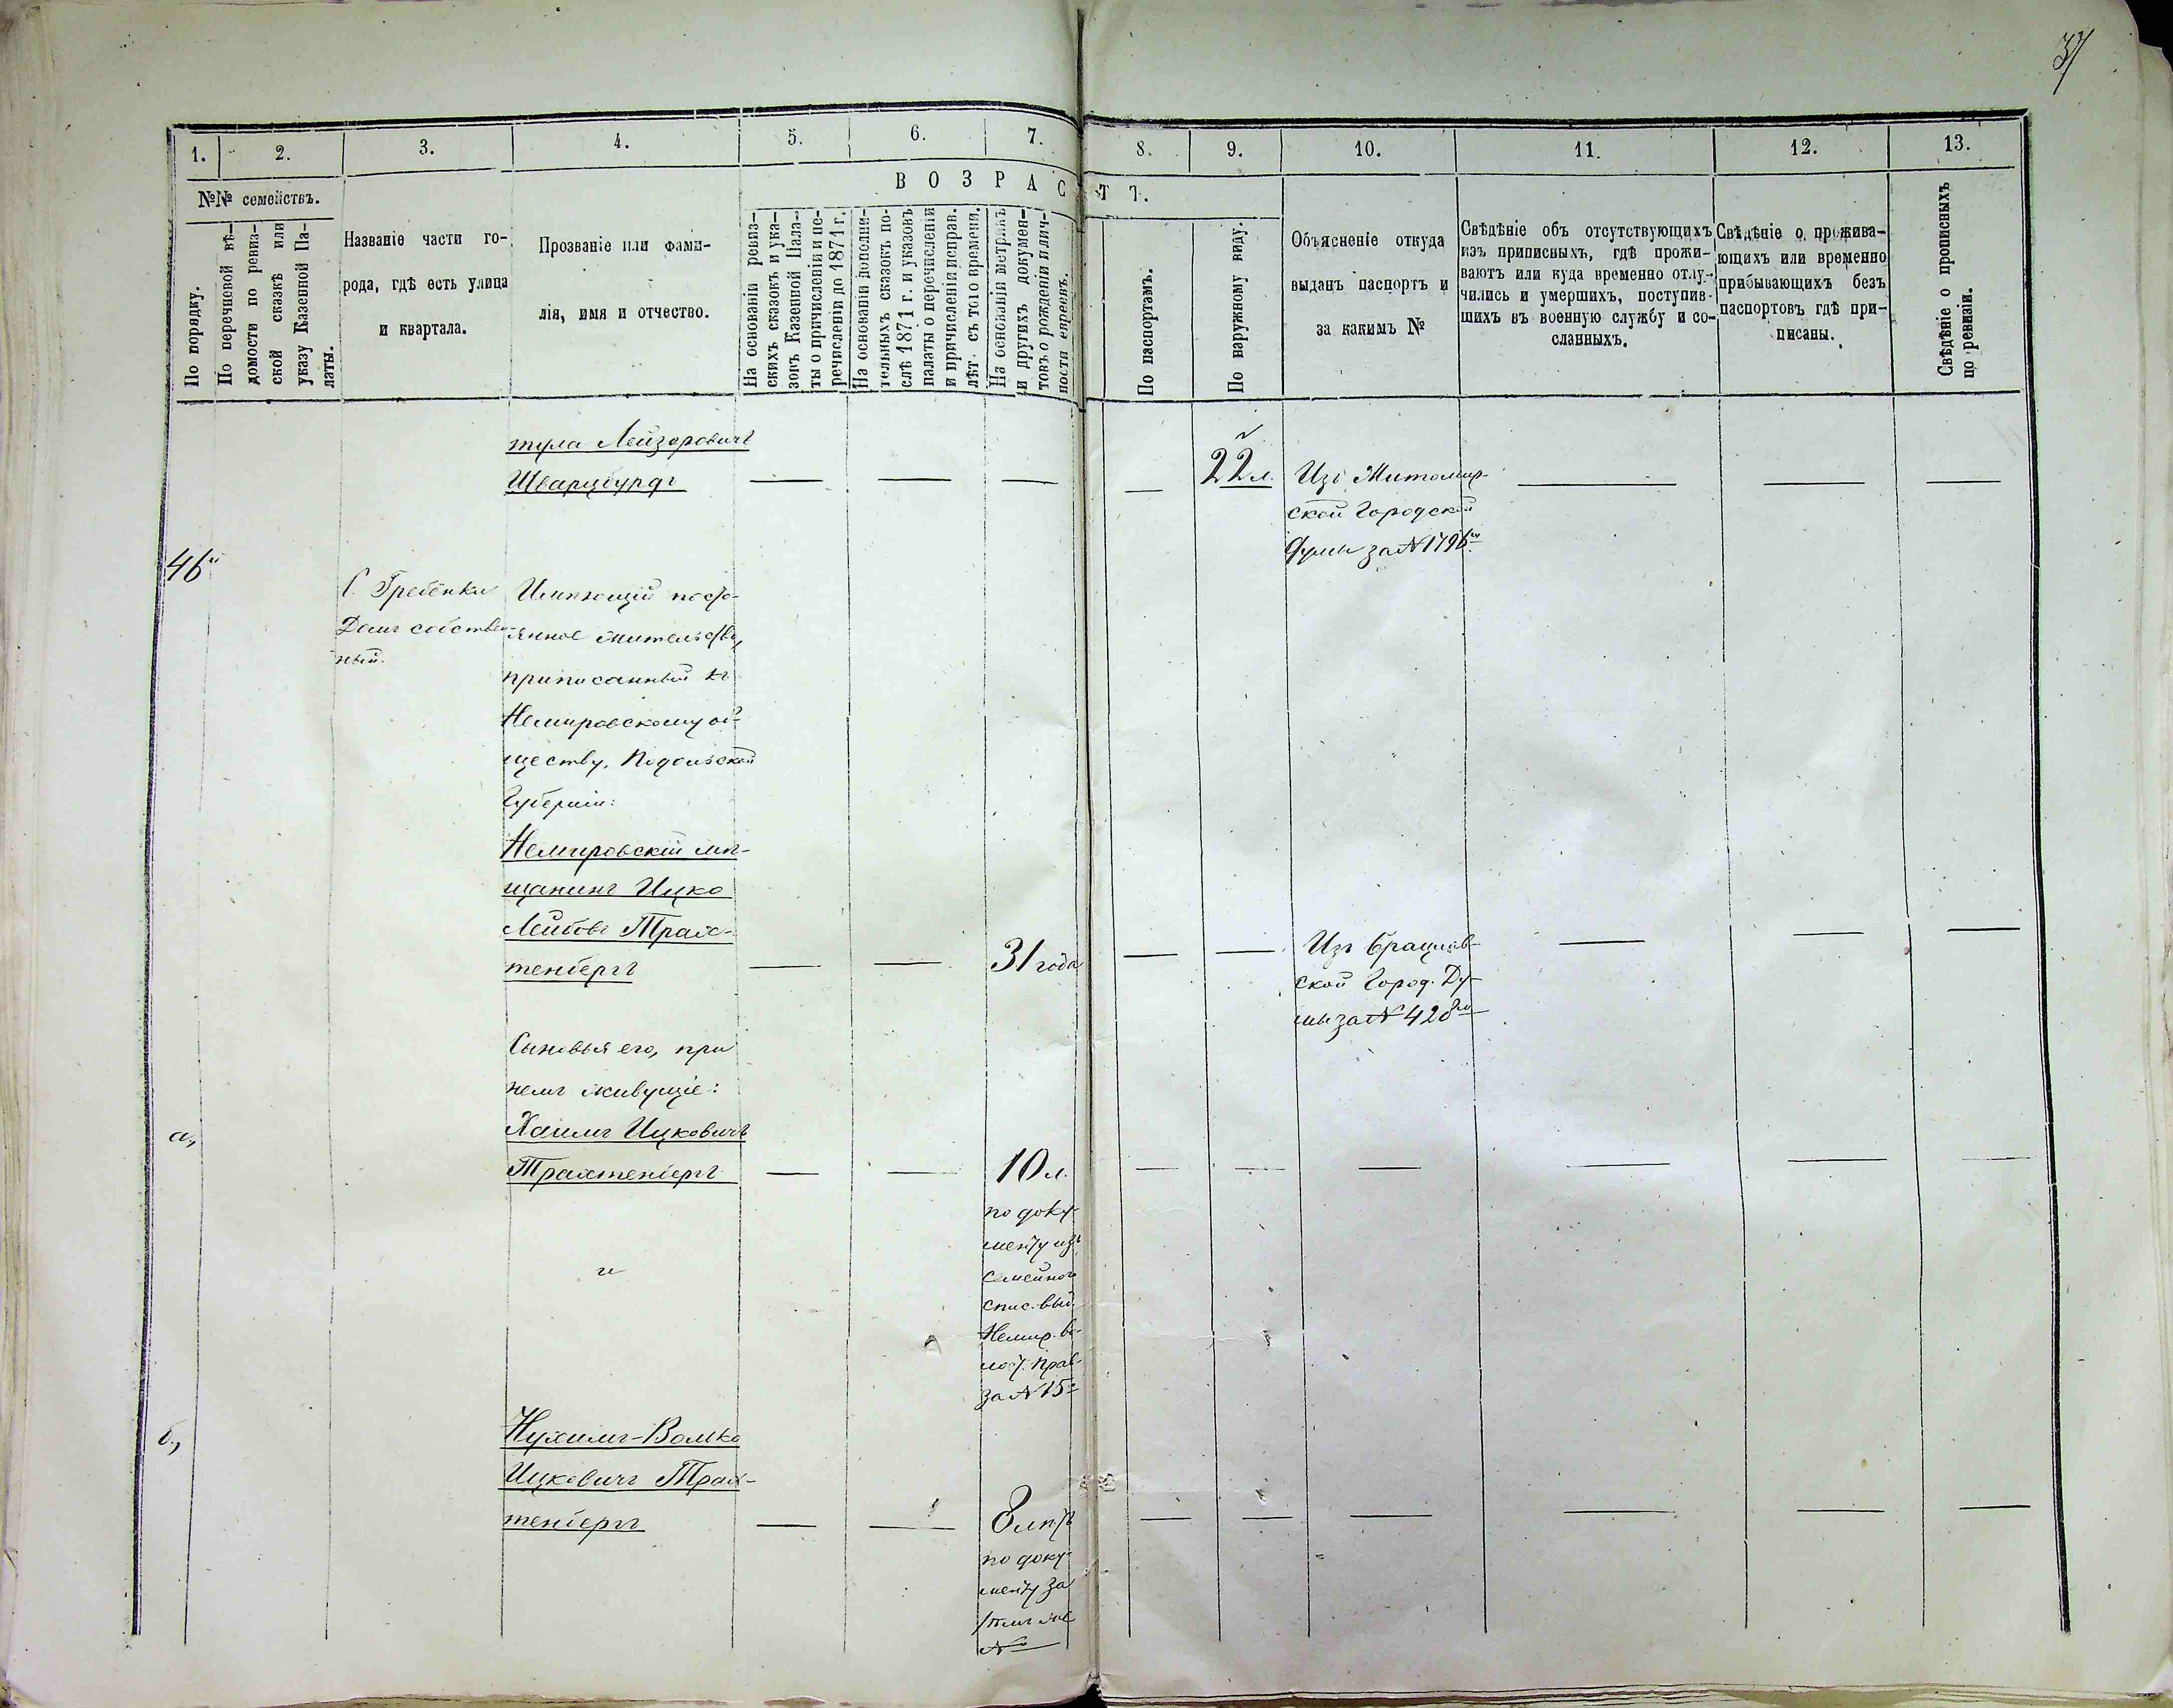 37
1. 2. 3. 4. 5. 6. 7. 8. 9. 10. 11. 12. 13.
№№ семействъ.
По порядку.
По перечневой вѣ-
домости по ревиз-
ской сказкѣ или
указу Казенной Па-
латы.
Названіе части го-
рода, гдѣ есть улица
и квартала.
Прозваніе или фами-
лія, имя и отчество.
ВОЗРАСТЪ.
На основаніи ревиз-
скихъ сказокъ и ука-
зовъ Казенной Пала-
ты о причисленіи и пе-
речисленіи до 1871 г.
На основаніи дополни-
тельныхъ сказокъ по-
слѣ 1871 г. и указовъ
палаты о перечисленіи
и причисленіи исправ.
лѣт. съ того времени.
На основаніи метрикъ
и другихъ докумен-
товъ о рожденіи и лич-
ности евреевъ.
По паспортамъ.
По наружному виду.
Объясненіе откуда
выданъ паспортъ и
за какимъ №
Свѣдѣніе объ отсутствующихъ
изъ приписныхъ, гдѣ прожи-
ваютъ или куда временно отлу-
чились и умершихъ, поступив-
шихъ въ военную службу и со-
сланныхъ.
Свѣдѣніе о прожива-
ющихъ или временно
прибывающихъ безъ
паспортовъ гдѣ при-
писаны.
Свѣдѣніе о прописныхъ
по ревизіи.
тула Лейзеровичъ
Шварцбурдъ — — — — 22 л. Изъ Житомир-
ской Городской
Думы за № 1796м
— — —
46й
С. Гребёнки
Домъ собствен-
ный.
Имѣющій посто-
янное жительство,
приписанный къ
Немировскому об-
ществу, Подольской
Губерніи:
Немировскій мѣ-
щанинъ Ицко
Лейбовъ Трах-
тенбергъ — — 31 года — — Изъ Брацлав-
ской Город. Ду-
мы за № 428мъ
— — —
Сыновья его, при
немъ живущіе:
а, Хаимъ Ицковичъ
Трахтенбергъ — — 10 л. — — — — — —
по доку-
менту изъ
семейнаго
спис. выд.
Немир. во-
лост. Прав.
за № 15м
и
б, Нухимъ-Волько
Ицковичъ Трах-
тенбергъ — — 8 лѣтъ — — — — — —
по доку-
менту за
тѣмъ же
№